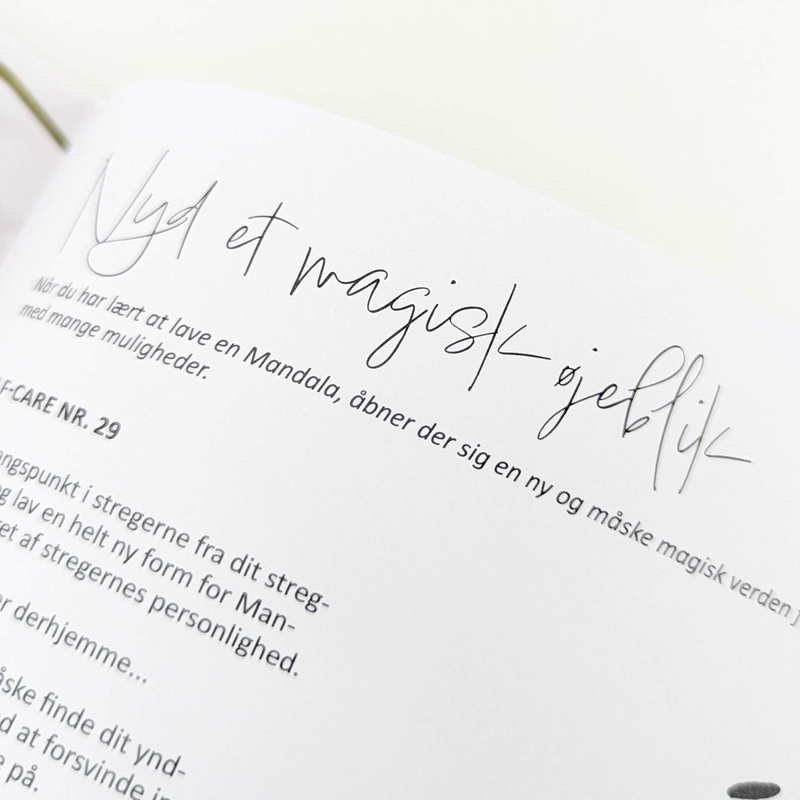 Nyd et magisk øjeblik
Når du har lært at lave en Mandala, åbner der sig en ny og måske magisk verden
med mange muligheder.
F-CARE NR. 29
ngspunkt i stregerne fra dit streg-
g lav en helt ny form for Man-
et af stregernes personlighed.
er derhjemme...
åske finde dit ynd-
d at forsvinde in
e på.